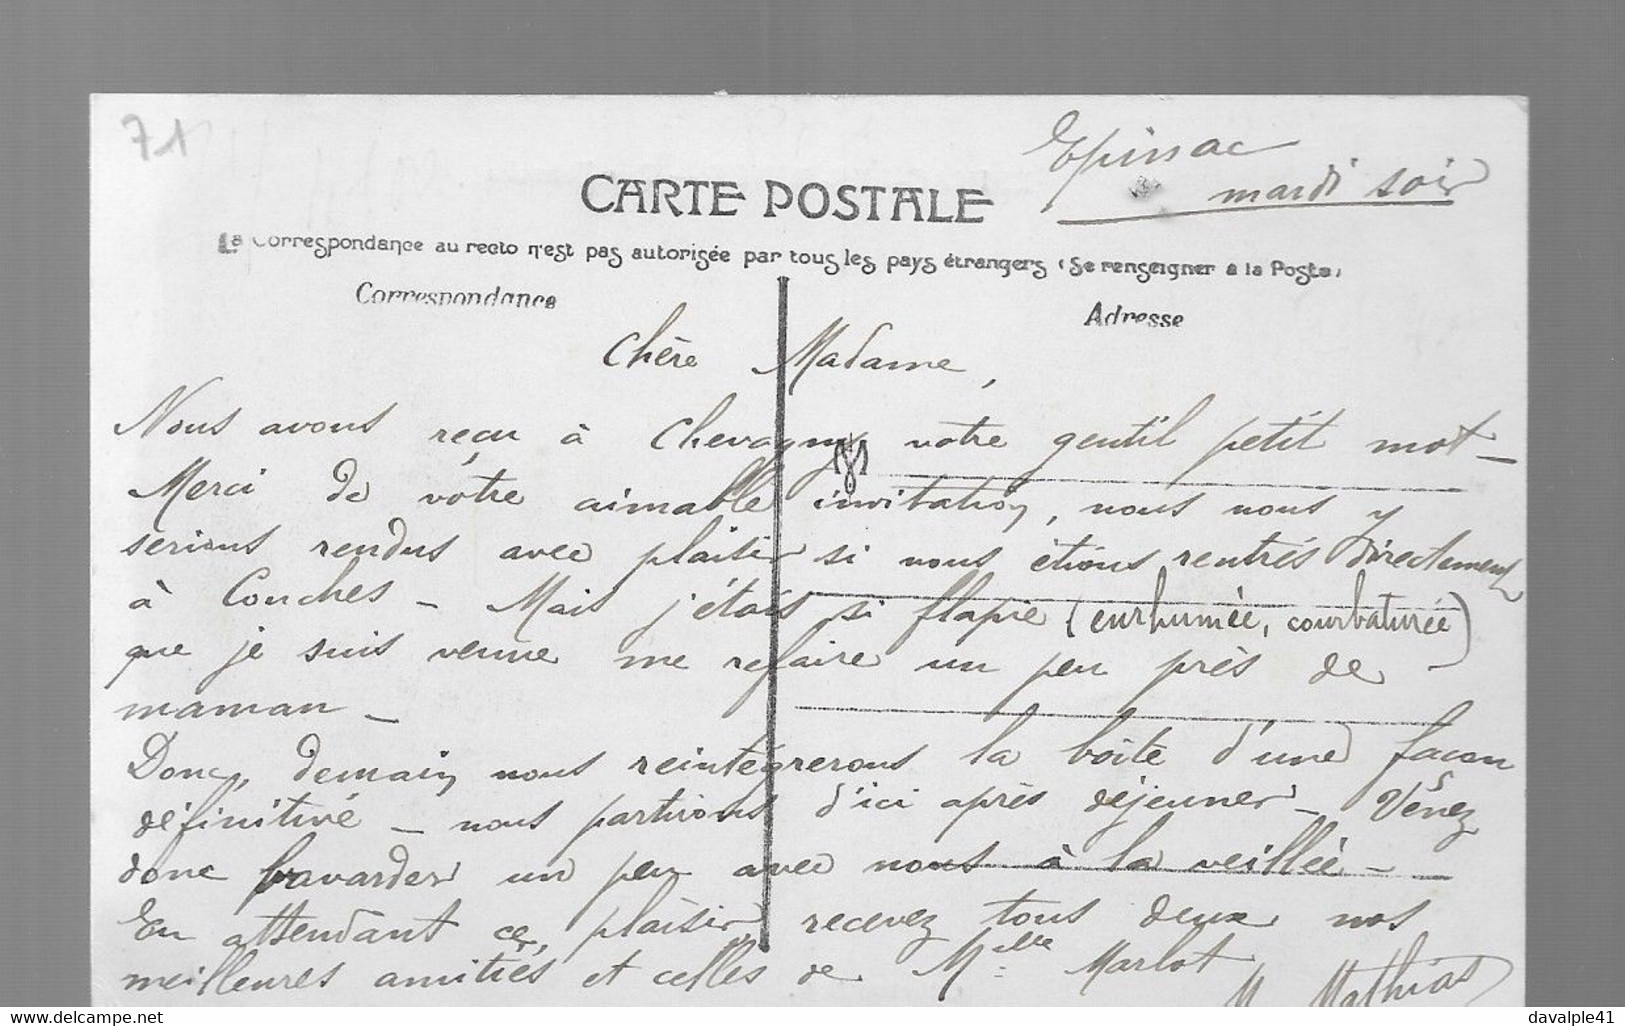 71
Epinac
mardi soir
CARTE POSTALE
La Correspondance au recto n'est pas autorisée par tous les pays étrangers (Se renseigner à la Poste)
Correspondance
Adresse
Chère Madame,
Nous avons reçu à Chevagny votre gentil petit mot -
Merci de votre aimable invitation, nous nous y
serions rendus avec plaisir si nous étions rentrés directement
à Couches - Mais j'étais si flapie (enrhumée, courbaturée)
que je suis venue me refaire un peu près de
maman -
Donc, demain nous reintégrerons la boîte d'une façon
définitive - nous partirons d'ici après déjeuner - Venez
donc bavarder un peu avec nous à la veillée -
En attendant ce plaisir, recevez tous deux nos
meilleures amitiés et celles de Melle Marlot
M. Mathias
Delcampe.net
davalple41